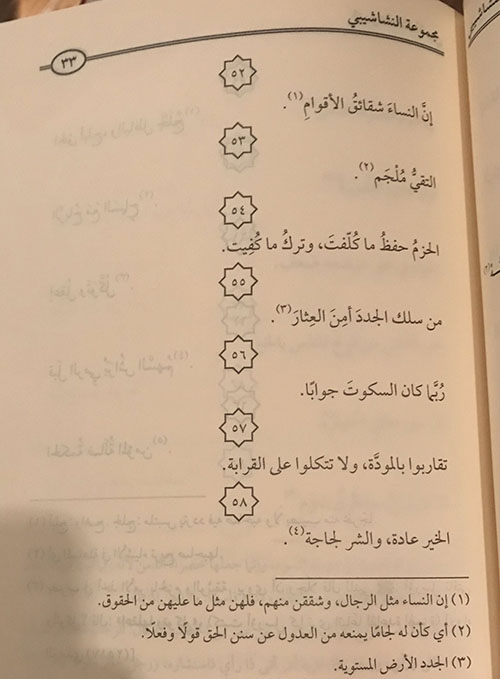 مجموعة النشاشيبي
٣٣
٥٢
إنَّ النساءَ شقائقُ الأقوامِ(١).
٥٣
التقيُّ مُلْجَم(٢).
٥٤
الحزمُ حفظُ ما كُلّفتَ، وتركُ ما كُفِيت.
٥٥
من سلك الجددَ أمِنَ العِثارَ(٣).
٥٦
رُبَّما كان السكوتَ جوابًا.
٥٧
تقاربوا بالمودَّة، ولا تتكلوا على القرابة.
٥٨
الخير عادة، والشر لجاجة(٤).
(١) إن النساء مثل الرجال، وشققن منهم، فلهن مثل ما عليهن من الحقوق.
(٢) أي كأن له لجامًا يمنعه من العدول عن سنن الحق قولًا وفعلًا.
(٣) الجدد الأرض المستوية.